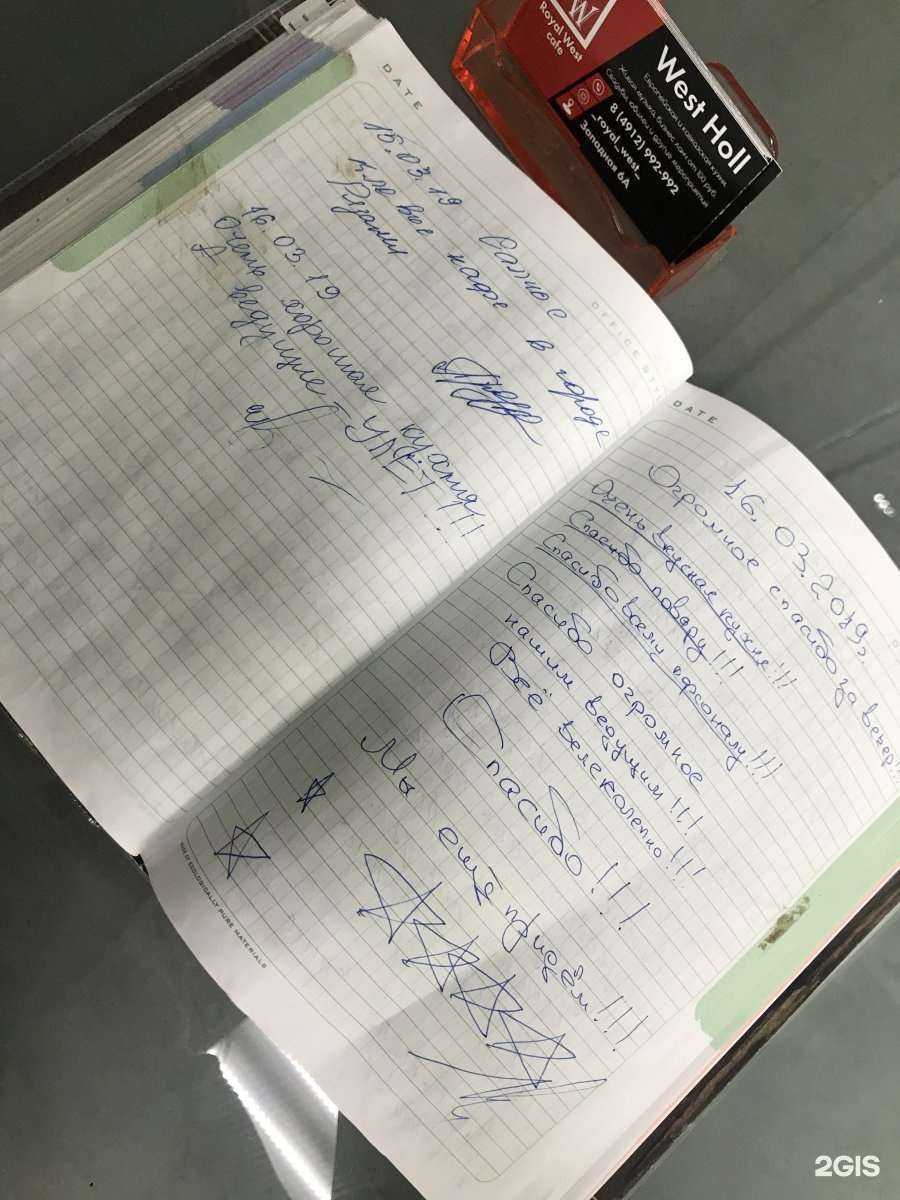 DATE
OFFICE STY
15.03.19 Самое
в городе
Рязани
16.03.19
Очень хорошая кухня!!!
А ведущие - УЛЁТ!
DATE
16.03.2019г.
Огромное спасибо за вечер!!
Очень вкусная кухня!!!
Спасибо повару!!!
Спасибо всему персоналу!!!
Спасибо огромное
нашим ведущим!!!
Всё великолепно!!!
Спасибо!!!
Мы ещё придём!!!
MADE OF ECOLOGICALLY PURE MATERIALS
W
Royal West
cafe
West Holl
Европейская и кавказская кухня,
Живая музыка, бизнес ланч от 100 руб.
Свадьбы, юбилеи и другие мероприятия
8(4912) 992-992
_royal_west_
Западная 6А
2GIS